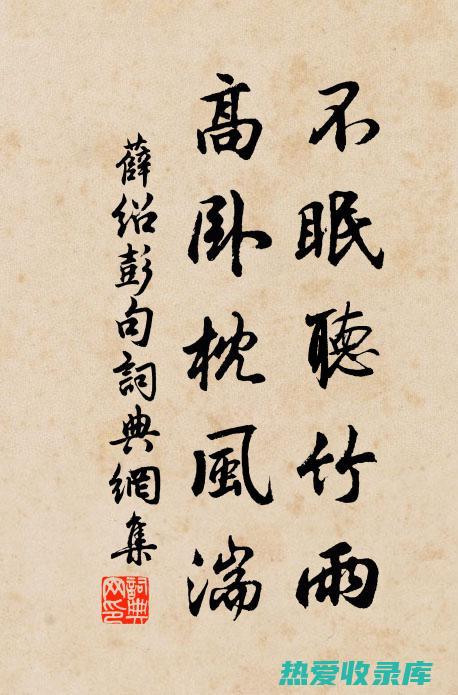 不眠聽竹雨
高卧枕風湍
薛紹彭句詞典網集
詞典
热爱收录库